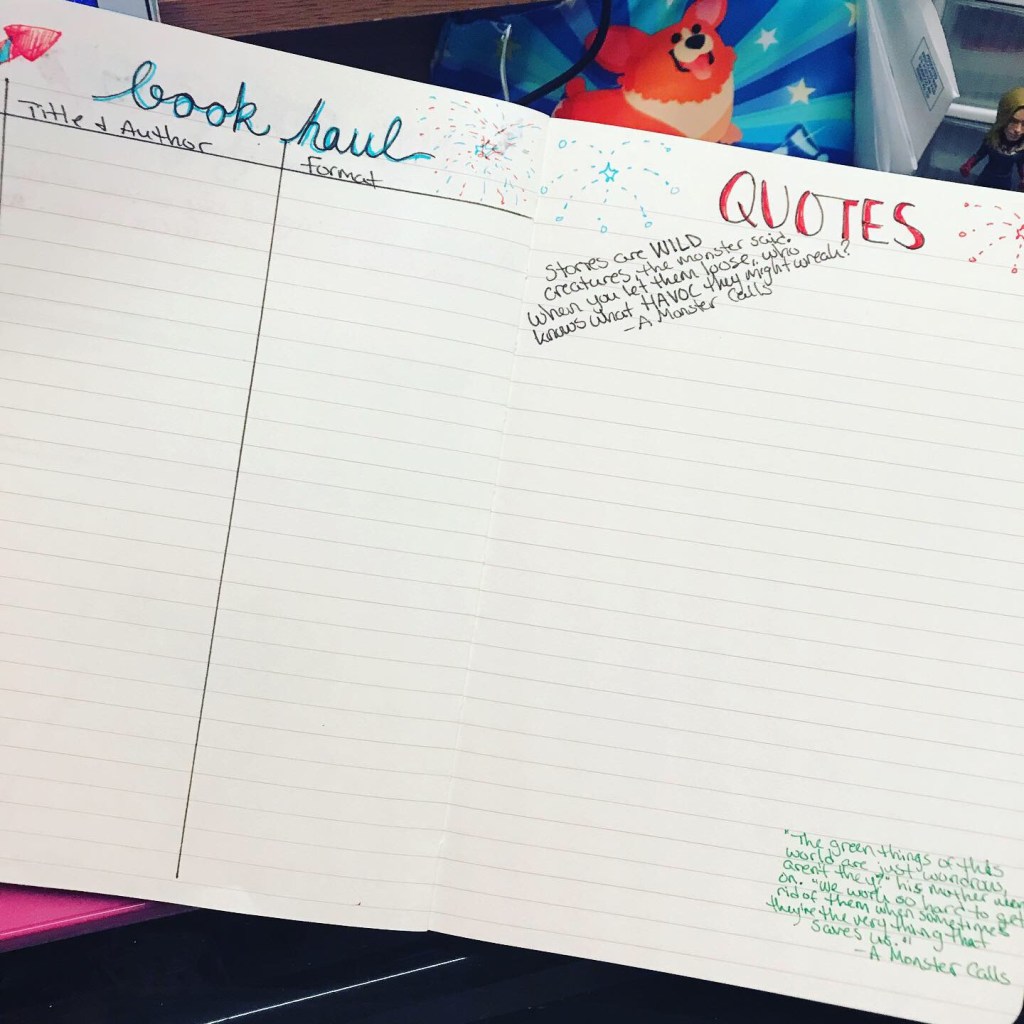 book haul
Title & Author
Format
QUOTES
Stories are WILD
creatures, the monster said.
When you let them loose, who
knows what HAVOC they might wreak?
-A Monster Calls
"The green things of this
world are just wondrous,
aren't they?" his mother went
on. "We work so hard to get
rid of them when sometimes
they're the very thing that
saves us."
-A Monster Calls